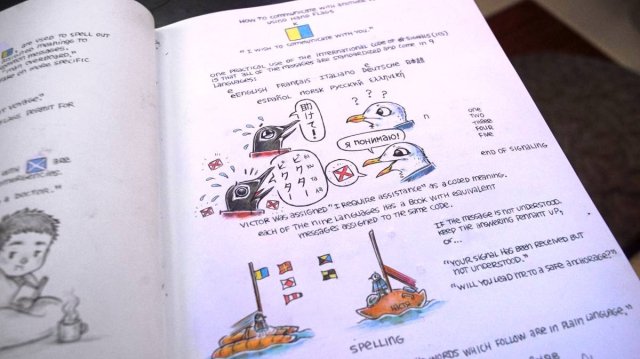 ARE USED TO SPELL OUT
MEANINGS TO
MESSAGES.
"MAN OVERBOARD,"
ON MORE SPECIFIC
VOYAGE."
PERMIT FOR
WITH
ARE
A DOCTOR."
HOW TO COMMUNICATE WITH
USING HAND FLAGS
K
"I WISH TO COMMUNICATE WITH YOU."
ONE PRACTICAL USE OF THE INTERNATIONAL CODE OF SIGNALS (ICS)
IS THAT ALL OF THE MESSAGES ARE STANDARDIZED AND COME IN 9
LANGUAGES:
ENGLISH FRANÇAIS ITALIANO DEUTSCHE 日本語
ESPAÑOL NORSK РУССКИЙ ΕΛΛΗΝΙΚΗ
助けて!
? ? ?
Я ПОНИМАЮ!
ビクター
ビクター
n
ONE
TWO
THREE
FOUR
FIVE
END OF SIGNALING
VICTOR WAS ASSIGNED "I REQUIRE ASSISTANCE" AS A CODED MEANING.
EACH OF THE NINE LANGUAGES HAS A BOOK WITH EQUIVALENT
MESSAGES ASSIGNED TO THE SAME CODE.
IF THE MESSAGE IS NOT UNDERSTOOD,
KEEP THE ANSWERING PENNANT UP,
OR...
"YOUR SIGNAL HAS BEEN RECEIVED BUT
NOT UNDERSTOOD."
"WILL YOU LEAD ME TO A SAFE ANCHORAGE?"
SPELLING
WORDS WHICH FOLLOW ARE IN PLAIN LANGUAGE,"